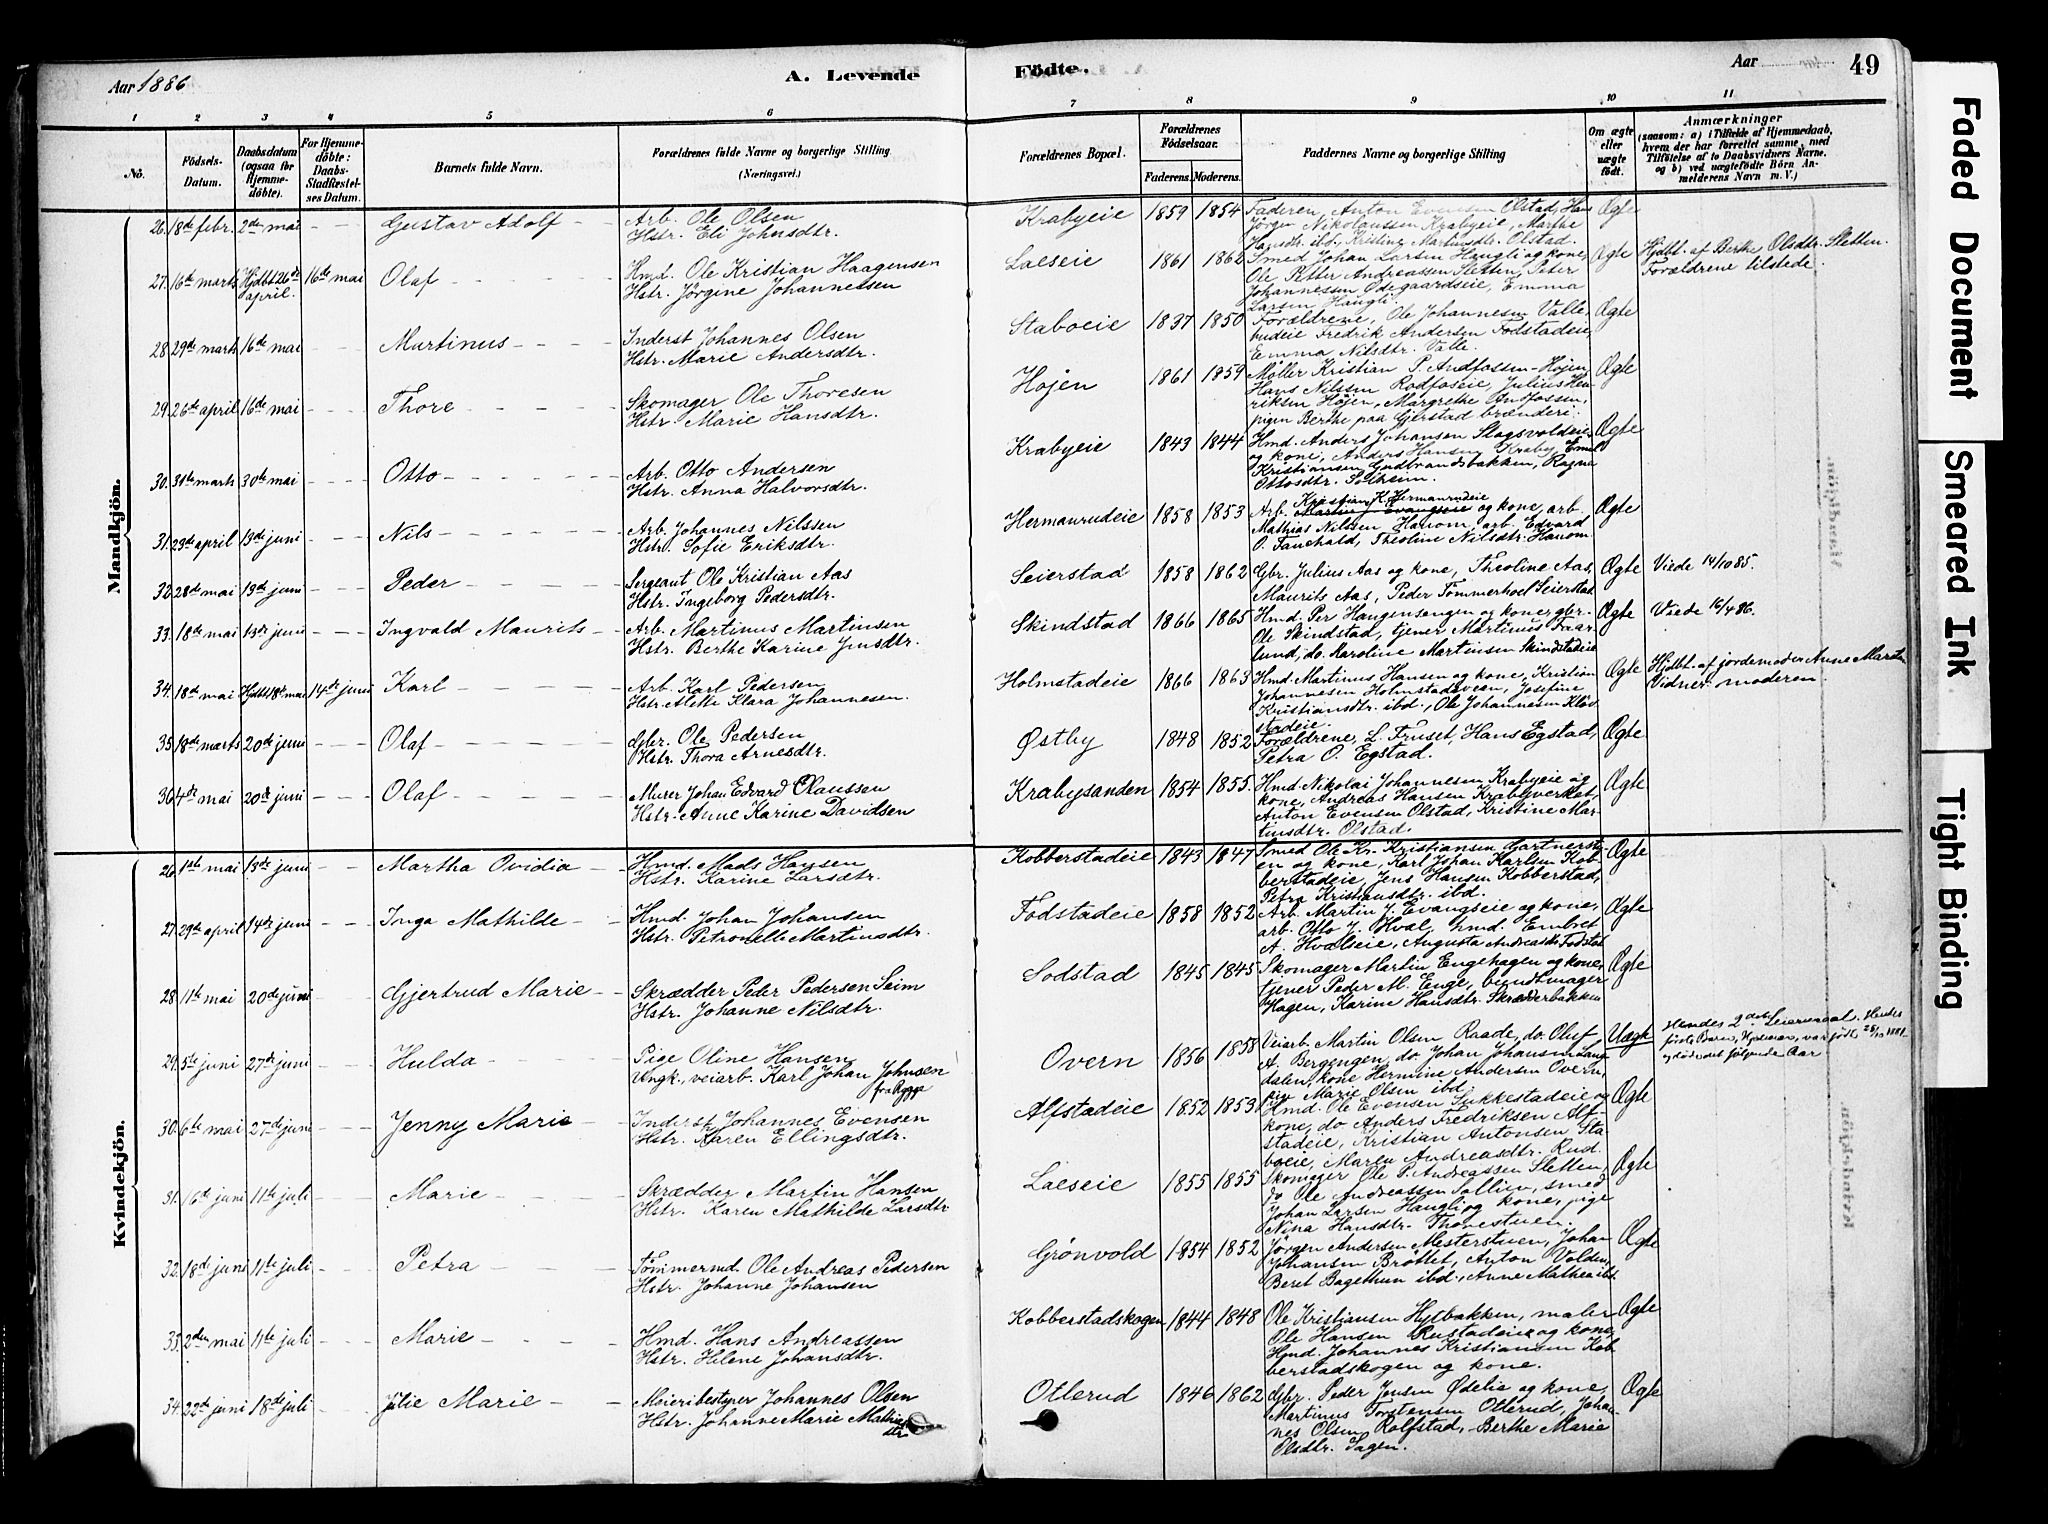 Aar 1886
A. Levende
Födte.
Aar
49
1 2 3 4 5 6 7 8 9 10 11
No.
Födsels-Datum.
Daabsdatum (ogsaa for Hjemmedöbte).
For Hjemmedöbte: Daabs-Stadfæstelses Datum.
Barnets fulde Navn.
Forældrenes fulde Navne og borgerlige Stilling
(Næringsvei.)
Forældrenes Bopæl.
Forældrenes Födselsaar.
Faderens. Moderens.
Faddernes Navne og borgerlige Stilling
Om ægte eller uægte födt.
Anmærkninger
(saasom: a) i Tilfælde af Hjemmedaab, hvem der har forrettet samme, med Tilföielse af to Daabsvidners Navne. og b) ved uægtefödte Börn Anmelderens Navn m. V.)
Mandkjön.
26. 18de febr. 2den mai - - Gustav Adolf - -
Arb. Ole Olsen
Hstr. Eli Johnsdtr.
Krabyeie 1859 1854
Faderen, Anton Evensen Olstad, Hans
Jørgen Nikolaussen Krabyeie, Marthe
Hansdtr. ibd., Kristine Martinsdtr. Olstad.
Ægte
27. 16de marts Hjdbt 26de april. 16de mai Olaf - - -
Hmd. Ole Kristian Haagensen
Hstr. Jörgine Johannessen
Laeseie 1861 1862
Smed Johan Larsen Haugli og kone,
Ole Petter Andreassen Sletten, Peter
Johannessen Ødegaardseie, Emma
Larsen Haugli.
Ægte
Hjdbt. af Berthe Olsdtr. Sletten.
Forældrene tilstede.
28. 29de marts 16de mai - - Martinus - - -
Inderst Johannes Olsen
Hstr. Marie Andersdtr.
Staboeie 1837 1850
Forældrene, Ole Johannesen Valle,
Fredrik Andersen Fodstadeie,
Emma Nilsdtr. Valle.
Ægte
29. 26de april 16de mai - - Thore - - -
Skomager Ole Thoresen
Hstr. Marie Hansdtr.
Højen 1861 1859
Møller Kristian P. Andfossen - Højen
Hans Nilssen Rodfoseie, Julius Hen-
riksen Højen, Margrethe Andfossen,
pigen Berthe paa Gjerstad brænderi.
Ægte
30. 31te marts 30te mai - - Otto - - -
Arb. Otto Andersen
Hstr. Anna Halvorsdtr.
Krabyeie 1843 1844
Hmd. Anders Johansen Slagsvoldeie
og kone, Anders Hansen Kraby, Emil
Kristiansen Gudbrandsbakken, Ragna
Ottosdtr. Solheim.
Ægte
31. 23de april 13de juni - - Nils - - -
Arb. Johannes Nilssen
Hstr. Sofie Eriksdtr.
Hermanrudeie 1858 1853
Kristian K. Hermanrudeie
Arb. Martin J. Evangseie og kone, arb.
Mathias Nilssen Hanom, arb. Edvard
O. Fauchald, Theoline Nilsdtr. Hanom
Ægte
32. 28de mai 13de juni - - Peder - - -
Sergeant Ole Kristian Aas
Hstr. Ingeborg Pedersdtr.
Seierstad 1858 1862
Gbr. Julius Aas og kone, Theoline Aas,
Maurits Aas, Peder Tømmerhoel Seierstad
Ægte
Viede 14/10 85.
33. 18de mai 13de juni - - Ingvald Maurits -
Arb. Martinus Martinsen
Hstr. Berthe Karine Jensdtr.
Skindstad 1866 1865
Hmd. Per Haugensengen og kone, gbr.
Ole Skindstad, tjener Martinus Faar-
lund, do. Karoline Martensen Skindstadeie
Ægte
Viede 16/4 86.
34. 18de mai Hjdbt 18de mai 14de juni Karl - - -
Arb. Karl Pedersen
Hstr. Alette Klara Johannesen.
Holmstadeie 1866 1863
Hmd. Martinus Hansen og kone, Kristian
Johannesen Holmstadsveen, Josefine
Kristiansdtr. ibd., Ole Johannesen Kløv-
stadeie.
Ægte
Hjdbt. af jordemoder Anne Martin
Vidner: moderen.
35. 18de marts 20de juni - - Olaf - - -
Gbr. Ole Pedersen
Hstr. Thora Arnesdtr.
Østby 1848 1852
Forældrene, L. Fruset, Hans Egstad,
Petra O. Egstad.
Ægte
36. 4de mai 20de juni - - Olaf - - -
Murer Johan Edvard Olaussen
Hstr. Anne Karine Davidsen
Krabysanden 1854 1855
Hmd. Nikolai Johannesen Krabyeie og
kone, Andreas Hansen Krabyverket,
Anton Evensen Olstad, Kristine Mar-
tinsdtr. Olstad.
Ægte
Kvindekjön.
26. 1ste mai 13de juni - - Martha Ovidia -
Hmd. Mads Hansen
Hstr. Karine Larsdtr.
Kobberstadeie 1843 1847
Smed Ole Kr. Kristiansen Gartnersty-
en og kone, Karl Johan Karlsen Kob-
berstadeie, Jens Hansen Kobberstad,
Petra Kristiansdtr. ibd.
Ægte
27. 29de april 14de juni - - Inga Mathilde -
Hmd. Johan Johansen
Hstr. Petronelle Martinsdtr.
Fodstadeie 1858 1852
Arb. Martin J. Evangseie og kone,
arb. Otto J. Hval, hmd. Embret
A. Hvalseie, Augusta Andreasdtr. Fodstad
Ægte
28. 11te mai 20de juni - - Gjertrud Marie -
Skrædder Peder Pedersen Seim
Hstr. Johanne Nilsdtr.
Sodstad 1845 1845
Skomager Martin Engehagen og kone,
tjener Peder M. Enge, bundtmager
Hagen, Karine Hansdtr. Skrædderbakken
Ægte
29. 5te juni 27de juni - - Hulda - -
Pige Oline Hansen
Ungk., veiarb. Karl Johan Johnsen
fra Rygge
Overn 1856 1858
Veiarb. Martin Olsen Raade, do. Oluf
A. Bergengen, do. Johan Johansen Lang-
dalen, kone Hermine Andersen Overn,
pige Marie Olsen ibd.
Uægte
Hendes 2det Leiermaal. Hendes
første Barn, var født 28/10 1881
og døde det følgende Aar
30. 6te mai 27de juni - - Jenny Marie -
Inderst Johannes Evensen
Hstr. Karen Ellingsdtr.
Alfstadeie 1852 1853
Hmd. Ole Evensen Sukkestadeie og
kone, do Anders Fredriksen Alf-
stadeie, Kristian Antonsen Sta-
boeie, Maren Andreasdtr. Rud.
Ægte
31. 16de juni 11te juli - - Marie - - -
Skrædder Martin Hansen
Hstr. Karen Mathilde Larsdtr
Laeseie 1855 1855
Skomager Ole P. Andreassen Sletten,
do Ole Andreassen Sollien, smed
Johan Larsen Haugli og kone, pige
Nina Hansdtr. Thorestuen.
Ægte
32. 18de juni 11te juli - - Petra - - -
Tømmermd. Ole Andreas Pedersen
Hstr. Johanne Johansen
Grönvold 1854 1852
Jörgen Andersen Mesterstuen, Johan
Johansen Bröttet, Anton Volden,
Beret Bagethun ibd., Anne Mathea ibd.
Ægte
33. 2den mai 11te juli - - Marie - - -
Hmd. Hans Andreassen
Hstr. Helene Johansdtr.
Kobberstadskogen 1844 1848
Ole Kristiansen Hytbakken, maler
Ole Hansen Rustadeie og kone,
Hmd. Johannes Kristiansen Kob-
berstadskogen og kone.
Ægte
34. 22de juni 18de juli - - Julie Marie - -
Meieribestyrer Johannes Olsen
Hstr. Johanne Marie Mathias-
dtr.
Otterud 1846 1862
Gbr. Peder Jensen Ødelie og kone,
Martinus Torstensen Otterud, Johan-
nes Olsen Rolfstad, Berthe Marie
Olsdtr. Sagen.
Ægte
Faded Document
Smeared Ink
Tight Binding